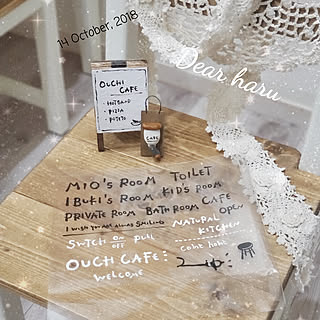 14 October, 2018
Dear haru
OUCHI
CAFE
· HOTSAND
· PIZZA
· POTETO
CAFE
MIO'S ROOM TOILET
IBUKI'S ROOM KID'S ROOM
PRIVATE ROOM BATH ROOM CAFE
I WISH YOU ARE ALWAYS SMILING OPEN
NATURAL
KITCHEN
SWITCH ON OFF PULL
OUCHI CAFE
WELCOME